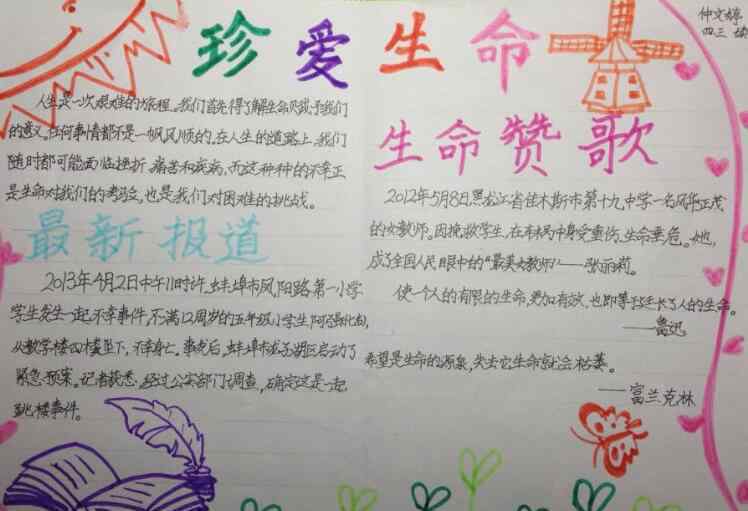 珍爱生命
仲文婷
四三
人生是一次艰难的旅程。我们首先得了解生命赋予我们
的意义。任何事情都不是一帆风顺的,在人生的道路上,我们
随时都可能面临挫折、痛苦和疾病,而这种种的不幸正
是生命对我们的考验,也是我们对困难的挑战。
最新报道
2013年4月2日中午11时许,蚌埠市凤阳路第一小学
学生发生一起不幸事件,不满12周岁的五年级小学生阿乃
从教学楼四楼坠下,不幸身亡。事发后,蚌埠市龙子湖区启动了
紧急预案。记者获悉,经过公安部门调查,确定这是一起
跳楼事件。
生命赞歌
2012年5月8日,黑龙江省佳木斯市第十九中学一名风华正茂
的女教师。因挽救学生,在车祸中身受重伤,生命垂危。她,
成了全国人民眼中的“最美女教师”——张丽莉。
使一个人的有限的生命,更加有效,也即等于延长了人的生命。
——鲁迅
希望是生命的源泉,失去它生命就会枯萎。
——富兰克林